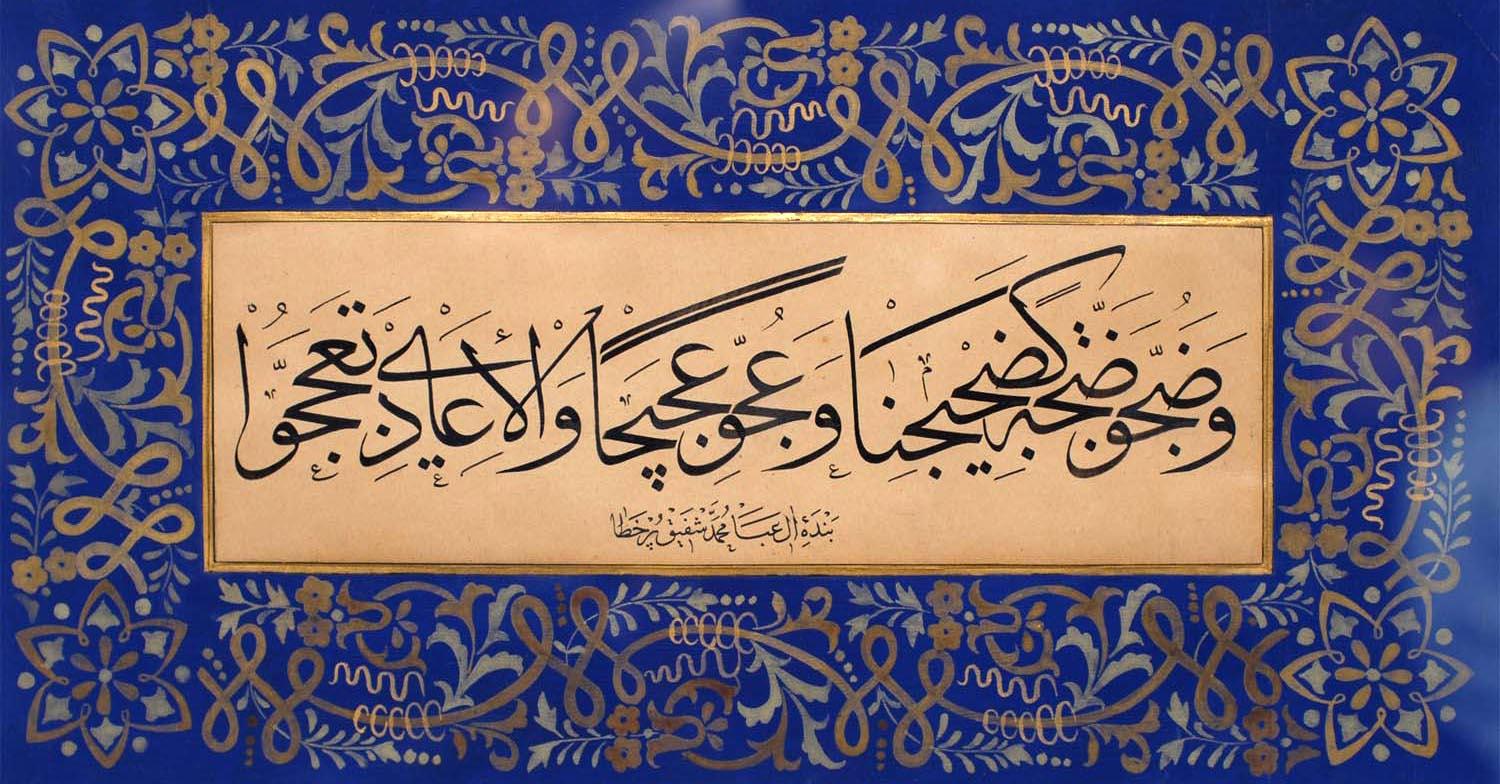 وضجو ضجة كضجيجنا وعجو عجيجا والأعادي تعجوا
بنده ال عبا محمد شفيق پر خطا